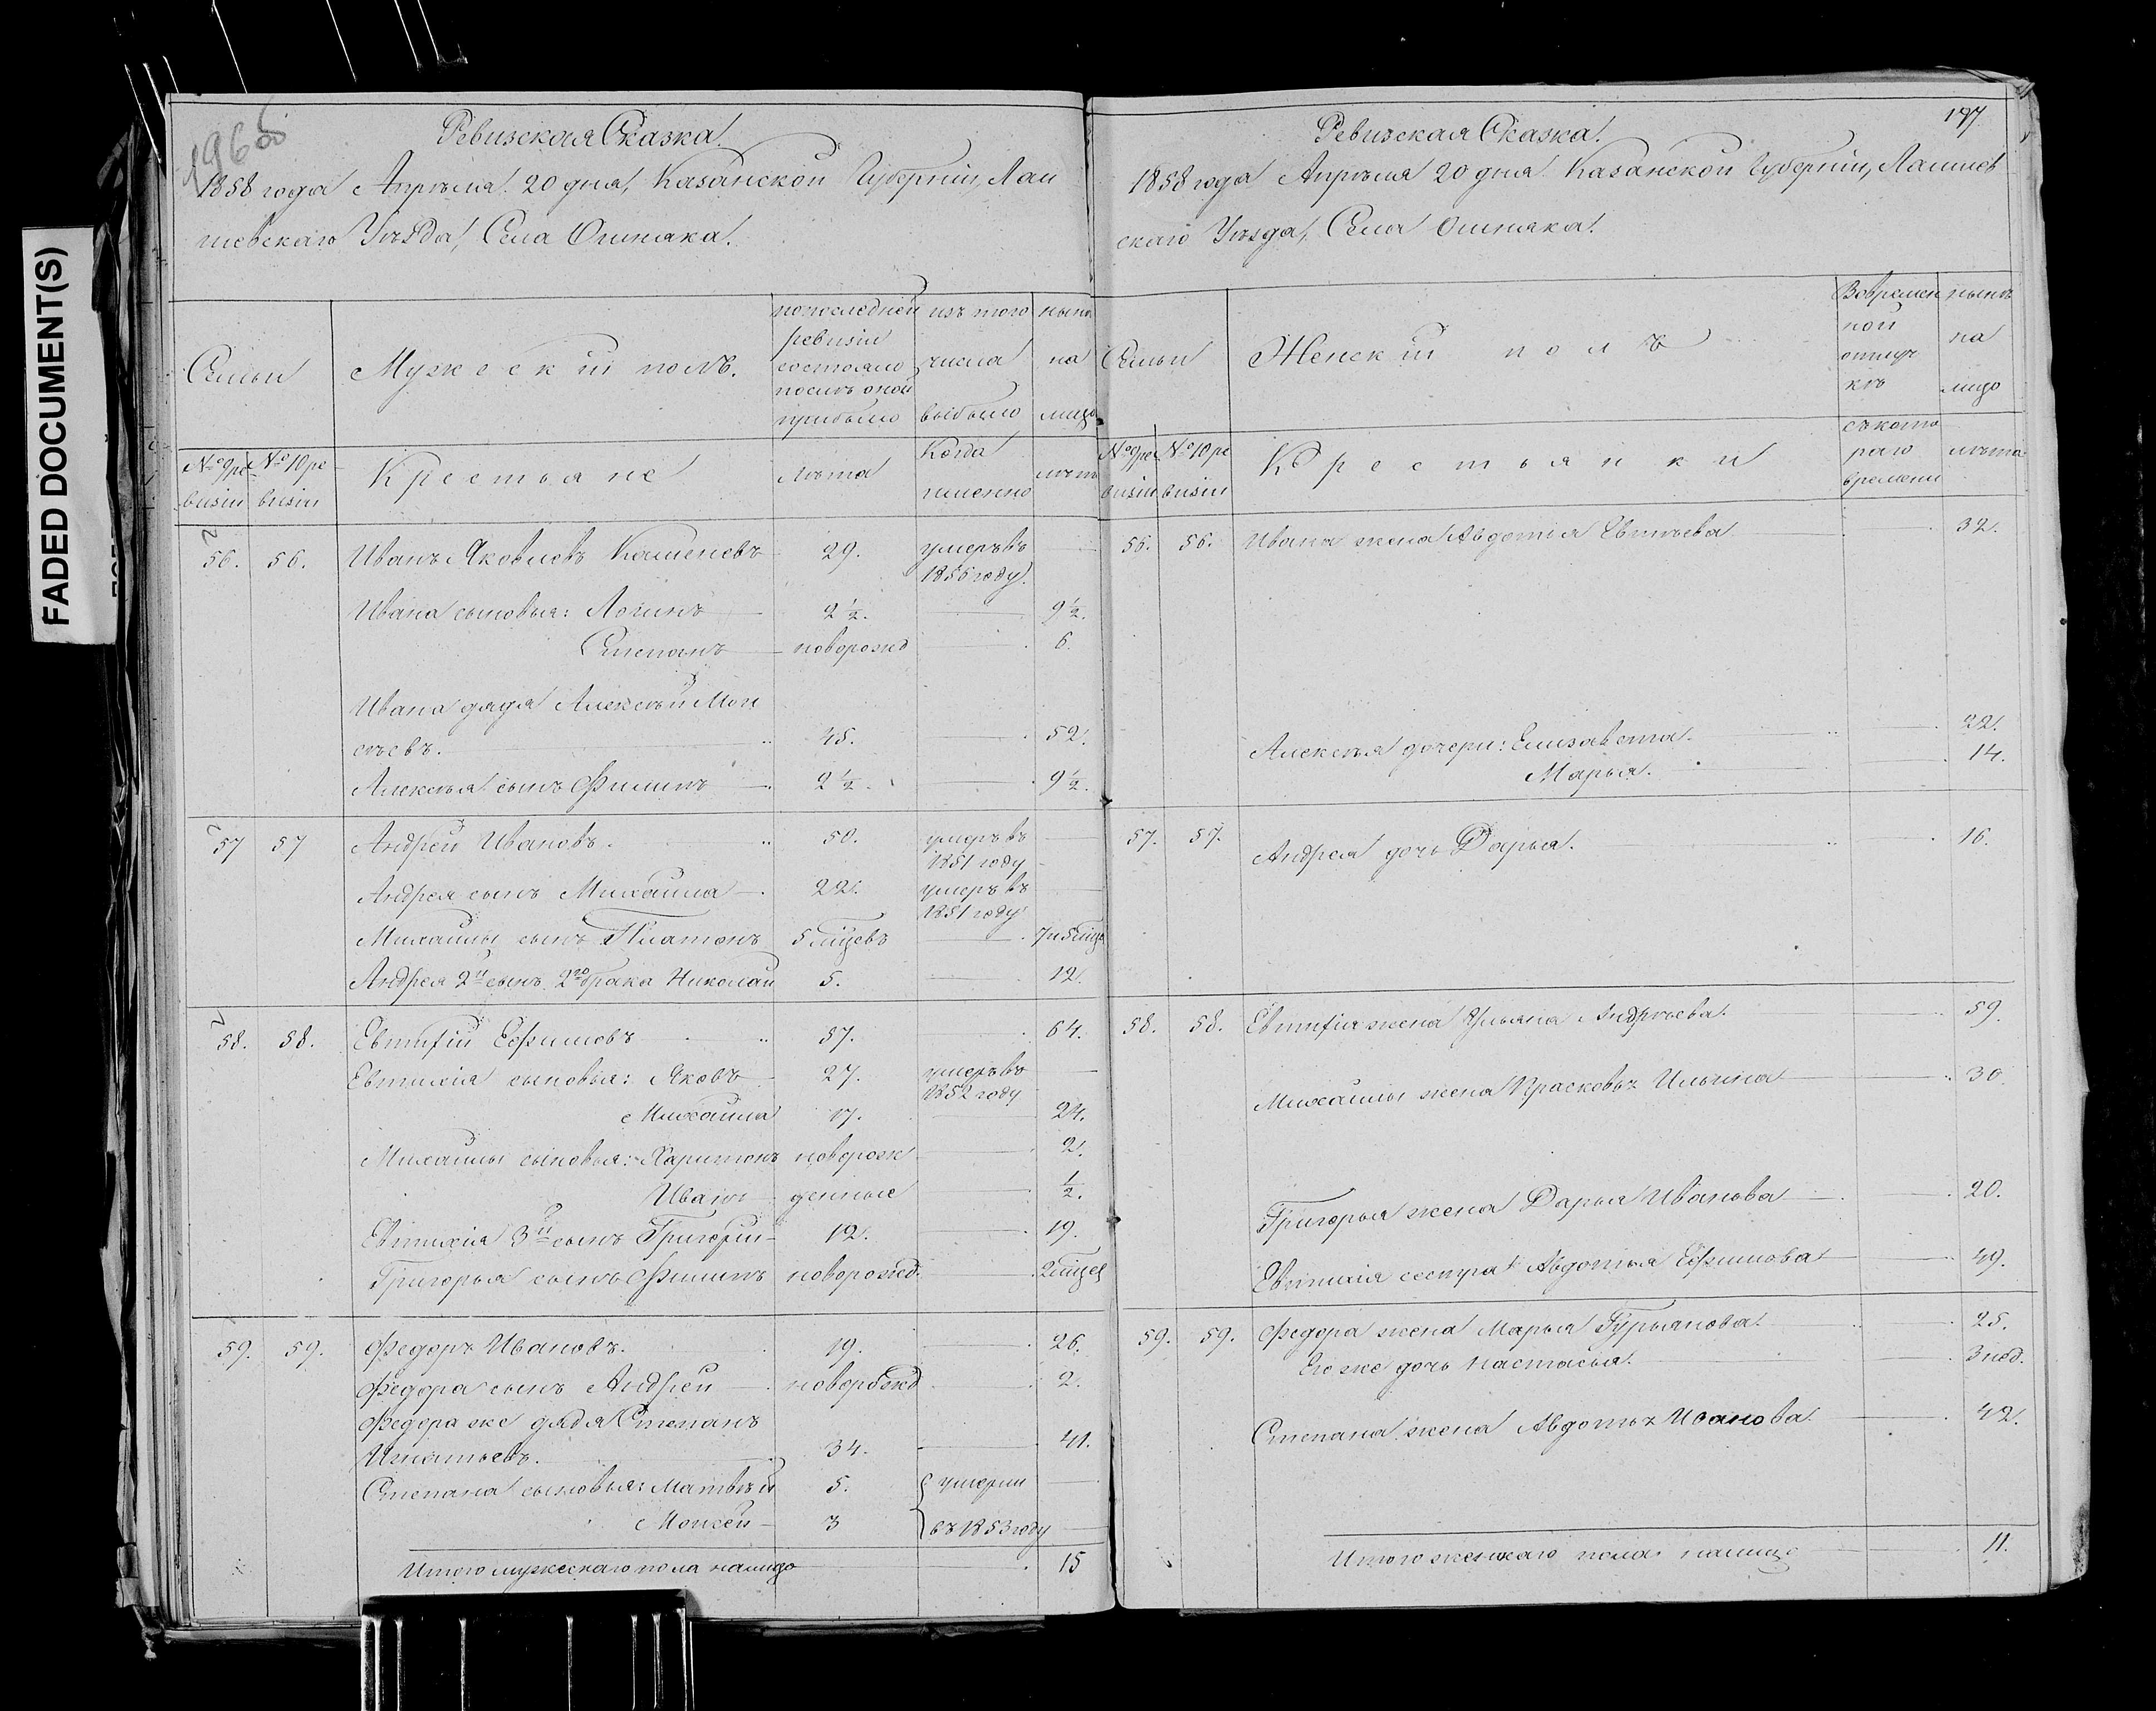 FADED DOCUMENT(S)
196об
Ревизская Сказка.
1858 года Апрѣля 20 дня, Казанской Губерніи, Лаи
шевскаго Уѣзда, Села Ошняка.
Семьи
Мужескій полъ.
по последней ревизіи состояло послѣ оной прибыло
изъ того числа выбыло
нынѣ на лицо
№ 9 ре визіи
№ 10 ре визіи
Крестьяне
лѣта
Когда именно
лѣта
56. 56. Иванъ Яковлевъ 29. умеръ въ
1856 году.
Ивана сыновья: Логинъ 2 1/2. 9 1/2.
Степанъ новорожд 6.
Ивана дядя Алексѣй Мои
сѣевъ. 45. 52.
Алексѣя сынъ Филипъ 2 1/2. 9 1/2.
57 57 Андрей Ивановъ. 50. умеръ въ
1851 году
Андрея сынъ Михайла 22. умеръ въ
1851 году
Михайлы сынъ Платонъ 5 мцевъ 7 и 5 мцев
Андрея 2й сынъ 2го брака Николай 5. 12.
58. 58. Евтифій Ефимовъ 57. 64.
Евтихія сыновья: Яковъ 27. умеръ въ
1852 году
Михайла 17. 24.
Михайлы сыновья: Харитонъ новорож 2.
Иванъ денные 1/2.
Евтихія 3й сынъ Григорій 12. 19.
Григорья сынъ Филипъ новорожд. 2 мцев
59. 59. Федоръ Ивановъ. 19. 26.
Федора сынъ Андрей новорожд 2.
Федора же дядя Степанъ
Игнатьевъ. 34. 41.
Степана сыновья: Матвѣй 5. умерли
Моисей 3 въ 1853 году
Итого мужескаго пола налицо 15
197
Ревизская Сказка.
1858 года Апрѣля 20 дня Казанской Губерніи, Лаишев
скаго Уѣзда, Села Ошняка.
Семьи
Женскій полъ
Во времен ной отлуч кѣ
нынѣ на лицо
№ 9 ре визіи
№ 10 ре визіи
Крестьянки
съ кото раго времени
лѣта
56. 56. Ивана жена Авдотья 32.
Алексѣя дочери: Елизавета. 22.
Марья. 14.
57. 57. Андрея дочь Дарья. 16.
58. 58. Евтифія жена Ульяна Андрѣева. 59.
Михайлы жена Прасковья Ильина 30.
Григорья жена Дарья Иванова 20.
Евтихія сестра Авдотья Ефимова 49.
59. 59. Федора жена Марья Гурьянова. 25.
Его же дочь Настасья. 3 нед.
Степана жена Авдотья Иванова. 42.
Итого женскаго пола налицо 11.